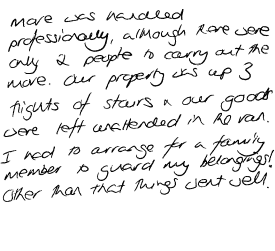 move was handled
professionally, although there were
only 2 people to carry out the
move. Our property was up 3
flights of stairs & our goods
were left unattended in the van.
I had to arrange for a family
member to guard my belongings!
Other than that things went well.